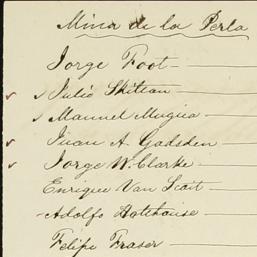 Mina de la Perla
Jorge Foot
Julio Skitian
Manuel Mugica
Juan A. Gadsden
Jorge W. Clarke
Enrique Van
Adolfo
Felipe Fraser